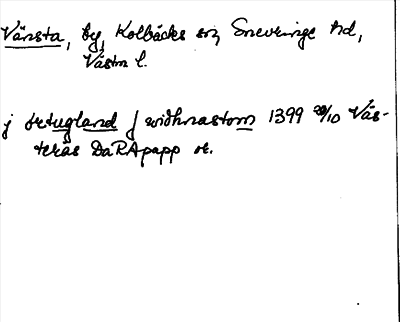 Vänsta, by, Kolbäcks sn, Snevringe hd,
Västm l.
j ørtugland j widhnastom 1399 20/10 Väs-
terås DaRApapp or.